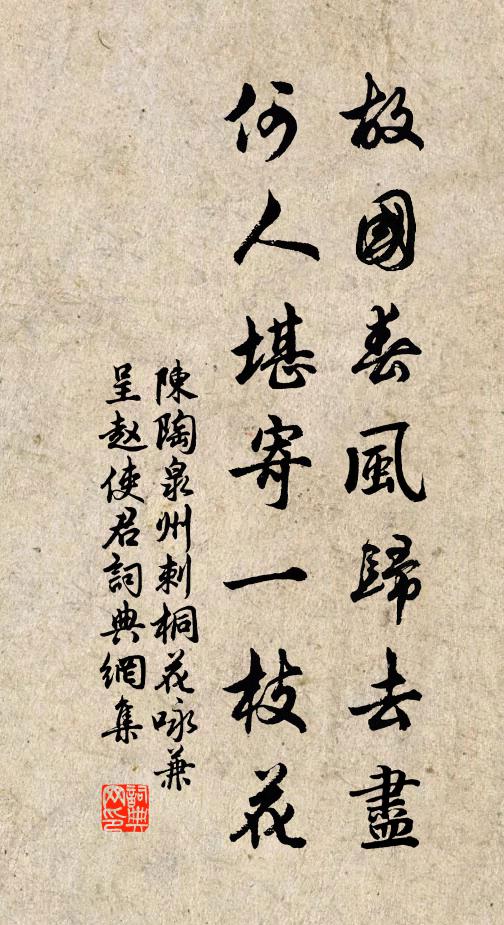 故國春風歸去盡
何人堪寄一枝花
陳陶泉州刺桐花咏兼
呈赵使君詞典網集
詞典网印